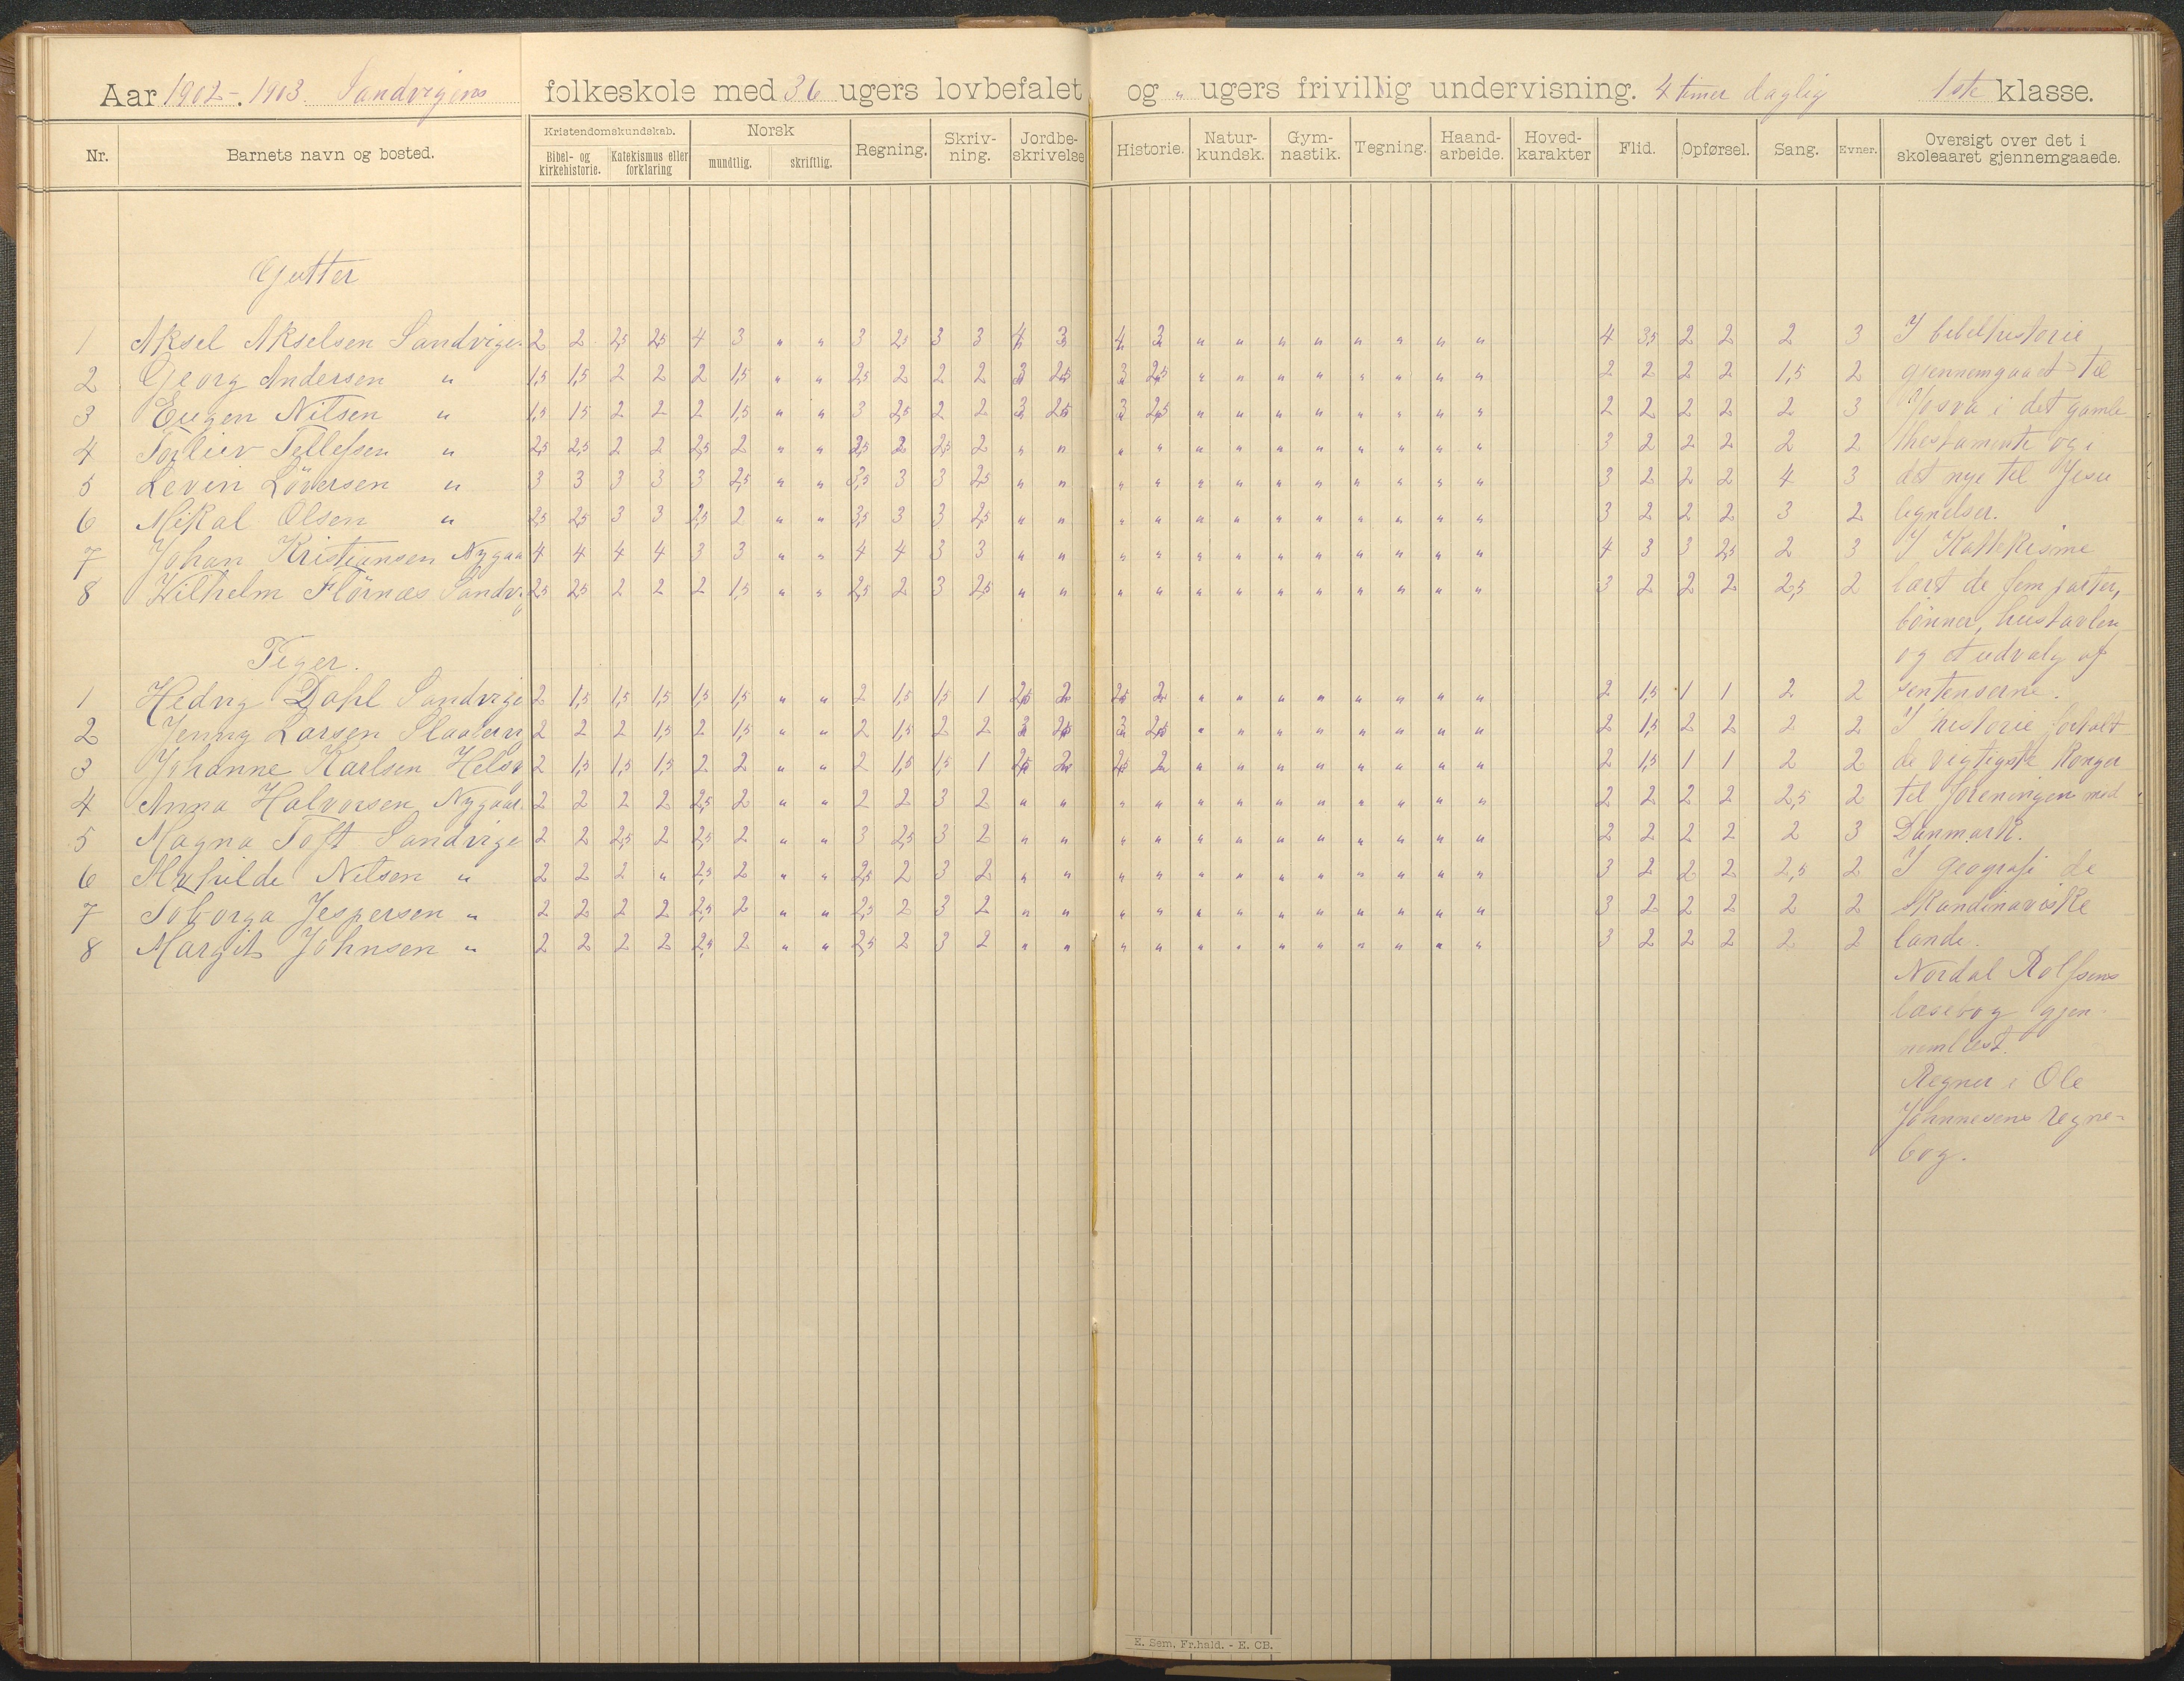 Aar 1902-1903. Sandvigens folkeskole med 36 ugers lovbefalet og " ugers frivillig undervisning. 4 timer daglig 1ste klasse.
Nr. Barnets navn og bosted. Kristendomskundskab. Norsk Regning. Skriv-ning. Jordbe-skrivelse Historie. Natur-kundsk. Gym-nastik. Tegning. Haand-arbeide. Hoved-karakter Flid. Opførsel. Sang. Evner. Oversigt over det i skoleaaret gjennemgaaede.
Bibel- og kirkehistorie. Katekismus eller forklaring mundtlig. skriftlig.
Gutter
1 Aksel Akselsen Sandvige. 2 2 2,5 2,5 4 3 " " 3 2,5 3 3 4 3 4 3 " " " " " " " " 4 3,5 2 2 2 3
2 Georg Andersen " 1,5 1,5 2 2 2 1,5 " " 2,5 2 2 2 3 2,5 3 2,5 " " " " " " " " 2 2 2 2 1,5 2
3 Eugen Nilsen " 1,5 1,5 2 2 2 1,5 " " 3 2,5 2 2 3 2,5 3 2,5 " " " " " " " " 2 2 2 2 2 3
4 Torleiv Tellefsen " 2,5 2,5 2 2 2,5 2 " " 2,5 2 2,5 2 " " " " " " " " " " " " 3 2 2 2 2 2
5 Levin Löversen " 3 3 3 3 3 2,5 " " 3,5 3 3 2,5 " " " " " " " " " " " " 3 2 2 2 4 3
6 Mikal Olsen " 2,5 2,5 3 3 2,5 2 " " 3,5 3 3 2,5 " " " " " " " " " " " " 3 2 2 2 3 2
7 Johan Kristiansen Nygaa 4 4 4 4 3 3 " " 4 4 3 3 " " " " " " " " " " " " 4 3 3 2,5 2 3
8 Wilhelm Flörnæs Sandvig 2,5 2,5 2 2 2 1,5 " " 2,5 2 3 2,5 " " " " " " " " " " " " 3 2 2 2 2,5 2
Piger.
1 Hedvig Dahl Sandvige 2 1,5 1,5 1,5 1,5 1,5 " " 2 1,5 1,5 1 2,5 2 2,5 2 " " " " " " " " 2 1,5 1 1 2 2
2 Jenny Larsen 2 2 2 1,5 2 1,5 " " 2 1,5 2 2 3 2,5 3 2,5 " " " " " " " " 2 1,5 2 2 2 2
3 Johanne Karlsen 2 1,5 1,5 1,5 2 2 " " 2 1,5 1,5 1 2,5 2 2,5 2 " " " " " " " " 2 1,5 1 1 2 2
4 Anna Halvorsen Nygaar. 2 2 2 2 2,5 2 " " 2 2 3 2 " " " " " " " " " " " " 2 2 2 2 2,5 2
5 Magna Toft Sandvige 2 2 2,5 2 2,5 2 " " 3 2,5 3 2 " " " " " " " " " " " " 2 2 2 2 2 3
6 Nilsen " 2 2 2 " 2,5 2 " " 2,5 2 3 2 " " " " " " " " " " " " 3 2 2 2 2,5 2
7 Solborga Jespersen " 2 2 2 2 2,5 2 " " 2,5 2 3 2 " " " " " " " " " " " " 3 2 2 2 2 2
8 Margit Johnsen " 2 2 2 2 2,5 2 " " 2,5 2 3 2 " " " " " " " " " " " " 3 2 2 2 2 2
I bibelhistorie
gjennemgaaet til
Josva i det gamle
thestamente og i
det nye til Jesu
lignelser.
I Kattekisme
lært de fem parter,
bönner, hustavlen
og et udvalg af
sentenserne.
I historie fortalt
de vigtigste konger
til foreningen med
Danmark.
I geografi de
skandinaviske
lande.
Nordal Rolfsens
læsebog gjen-
nemlæst.
Regner i Ole
Johannesens regne-
bog.
E. Sem, Fr.hald. - E. CB.